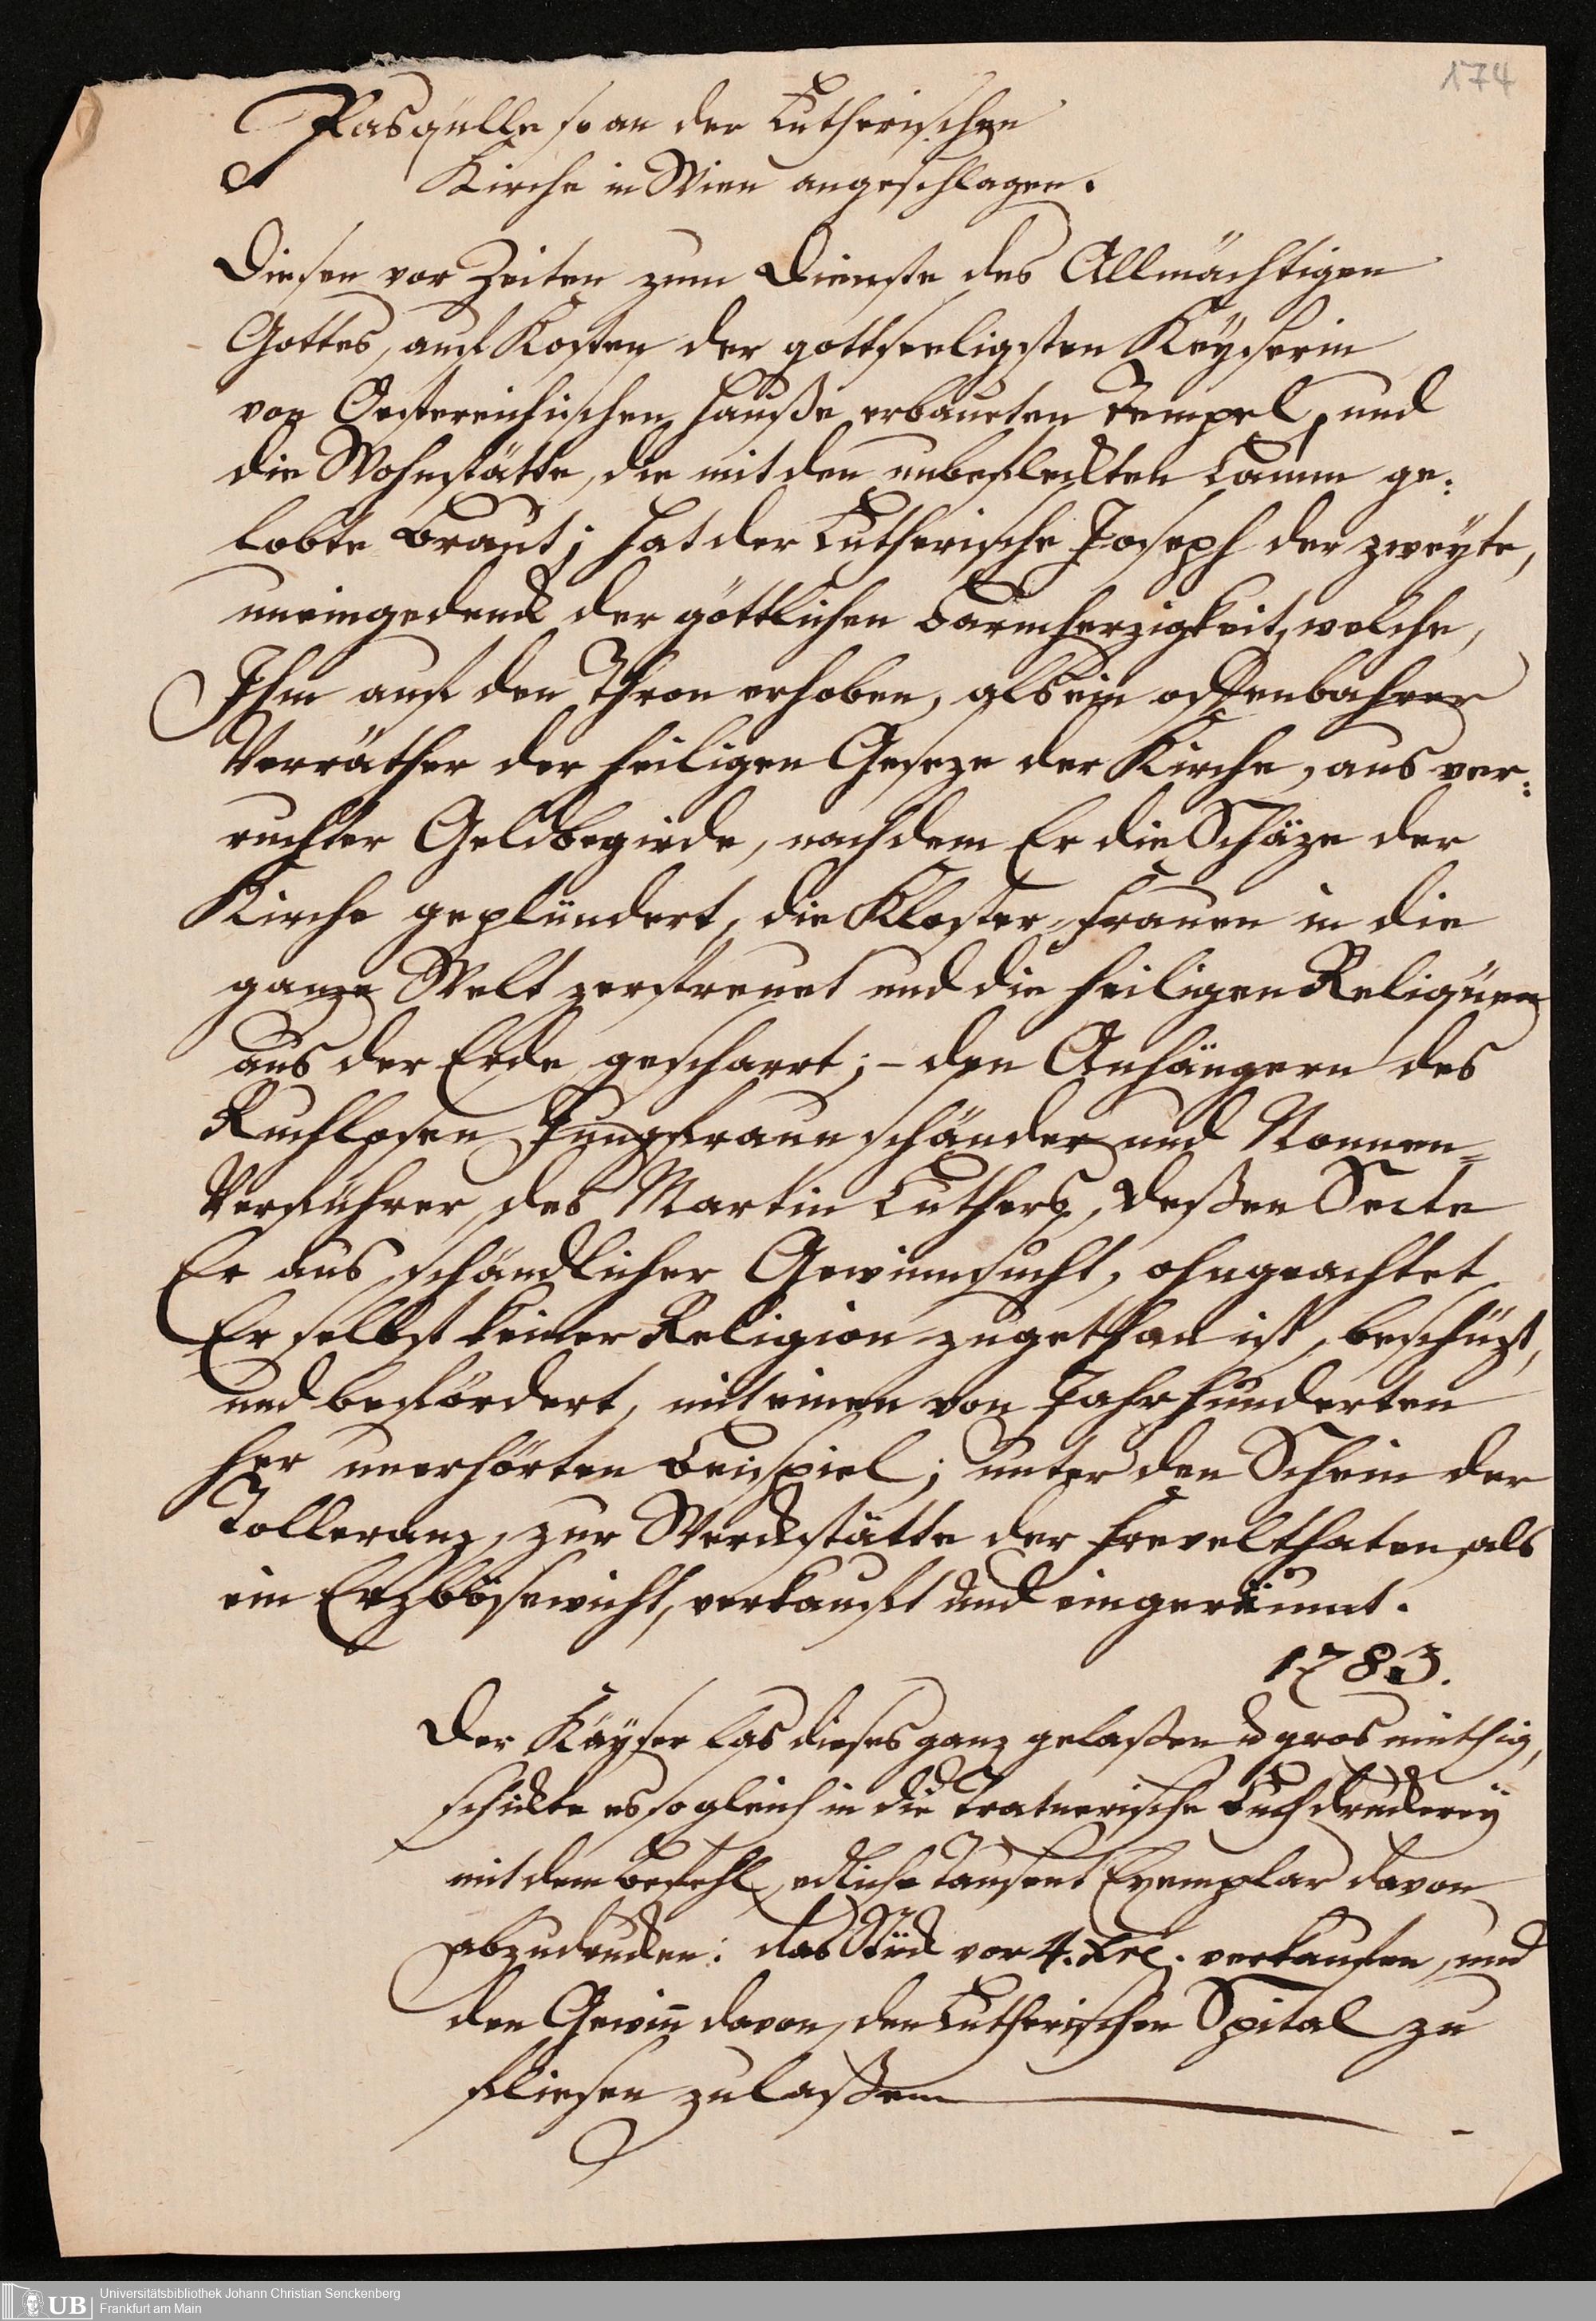 174
Pasqülle so an der Lutherischen
Kirche in Wien angeschlagen.
Diesen vor Zeiten zum Dienste des Allmächtigen
Gottes, auf Kosten der gottseeligsten Keyserin
von Oestereichischen Hauße erbaueten Tempel, und
die Wohnstätte, die mit den unbefleckten Lamm ge:
lobte Braut; hat der Lutherische Joseph der zweyte,
uneingedenck der göttlichen Barmherzigkeit, welche,
Ihm auf den Thron erhoben, als ein offenbahrer
Verräther der heiligen Geseze der Kirche, aus ver:
ruchter Geldbegirde, nachdem Er die Schäze der
Kirche geplündert, die Kloster-Frauen in die
ganze Welt zerstreuet und die heiligen Reliqüen
aus der Erde gescharrt; - den Anhängern des
Ruchlosen Jungfrauenschänder und Nonnen=
Verführer, des Martin Luthers, deßen Secte
Er aus schändlicher Gewinnsucht, ohngeachtet
Er selbst keiner Religion zugethan ist, beschüzt,
und befördert, mit einen von Jahrhunderten
her unerhörten Beispiel; unter den Schein der
Tolleranz, zur Werckstätte der Frevelthaten, als
ein Erzbösewicht, verkauft und eingeräumt.
1783.
Der Kayser las dieses ganz gelaßen u grosmüthig,
schickte es sogleich in die Tratnerische Buchdruckerey
mit dem Befehl, edliche tausent Exemplar davon
abzudrucken: das Stück vor 4. Xrl. verkaufen, und
den Gewiñ davon, den Lutherischen Spital zu
fliesen zu laßen
UB
Universitätsbibliothek Johann Christian Senckenberg
Frankfurt am Main